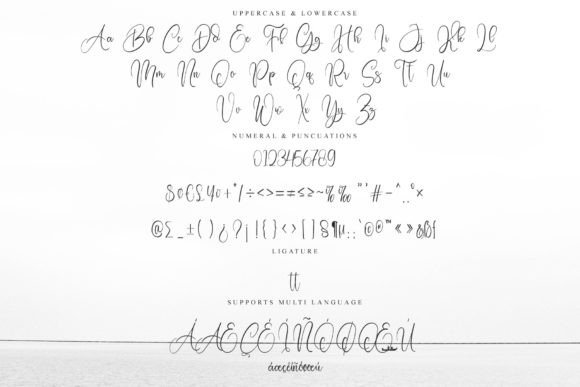 UPPERCASE & LOWERCASE
Aa Bb Cc Dd Ee Ff Gg Hh Ii Jj Kk Ll
Mm Nn Oo Pp Qq Rr Ss Tt Uu
Vv Ww Xx Yy Zz
NUMERAL & PUNCUATIONS
0123456789
+ / ÷ < > = ≠ ≤ ≥ ~ % ‰ # -
@ _ ± ( ) ¿ ? ¡ ! { } ‹ › [ ] § ¶ µ © ® ™ « »
LIGATURE
tt
SUPPORTS MULTI LANGUAGE